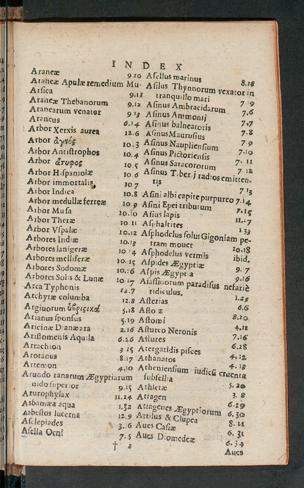 INDEX
Araneæ 9.10
Araneæ Apulæ remedium Mu-
Arsica 9.12
Araneæ Thebanorum 9.12
Aranearum venator 9.13
Araneus 6.14
Arbor Xerxis aurea 12.6
Arbor
Arbor Antistrophos 10.4
Arbor
Arbor Hispaniolæ
Arbor immortalis
Arbor Indica 10.8
Arbor medullæ ferreæ 10.9
Arbor Musa 10.10
Arbor Theræ 10.11
Arbor Vspalæ 10.12
Arbores Indiæ 10.13
Arbores lanigeræ 10.14
Arbores melliferæ
Arbores Sodomæ
Arbores Solis & Lunæ 10.17
Arca Typhonis
Archytæ columba 12.8
Argiuorum
Arianus sponsus 5.19
Aricinæ Dianæ ara 2.16
Aristomenis Aquila 6.26
Arrachion 3.15
Arotarius 8.17
Artemon 4.10
Arundo ranarum Ægyptiarum
nido superior 9.15
Arturophylax 11.24
Asbamæa aqua 1.52
Asbestos lucerna 12.9
Asclepiades 3.6
Asella Ocni 7.5
Asellus marinus 8.18
Asilus Thynnorum vexator in
tranquillo mari 7.9
Asinus Ambracidarum 7.6
Asinus Ammonij 7.7
Asinus balneatoris 7.8
Asinus Maurusius 7.8
Asinus Naupliensium 7.9
Asinus Pictoriensis 7.10
Asinus Saracotorum 7.12
Asinus T. ber. j radios emitten-
tis 7.13
Asini albi capite purpureo 7.14
Asini Epei tributum 7.15
Asius lapis 11.17
Asphaltites 1.33
Asphodelus solut Gigoniam pe-
tram mouet 10.18
Asphodelus vermis ibid.
Aspides Ægyptiæ 9.7
Aspis Ægyptia 9.16
Assassinorum paradisus nefariè
ridiculus.
Asterias 6.8
Astio z 6.6
Astomi 8.20
Asturco Neronis 4.11
Astures 7.16
Atergatidis pisces 6.28
Athanatos 4.12
Atheniensium iudicū cruenta
subsellia 4.18
Athletæ 5.20
Attagen 3.8
Attagenes Ægyptiorum 6.29
Attilus & Clupea 8.11
Aues Casiæ 6.31
Aues Diomedeæ 6.34
† 2
Aues